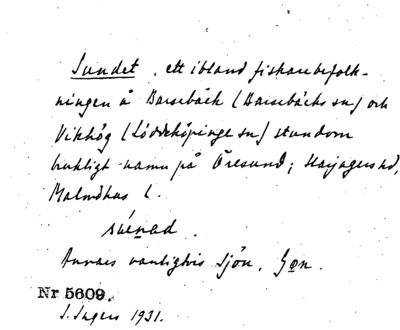 Sundet, ett ibland fiskarebefolk-
ningen å Barsebäck (Barsebäcks sn) och
Vikhög (Löddeköpinge sn) stundom
brukligt namn på Öresund; Harjagers hd,
Malmöhus l.
Annars vanligtvis Sjön,
Nr 5609.
S. Ingers 1931.